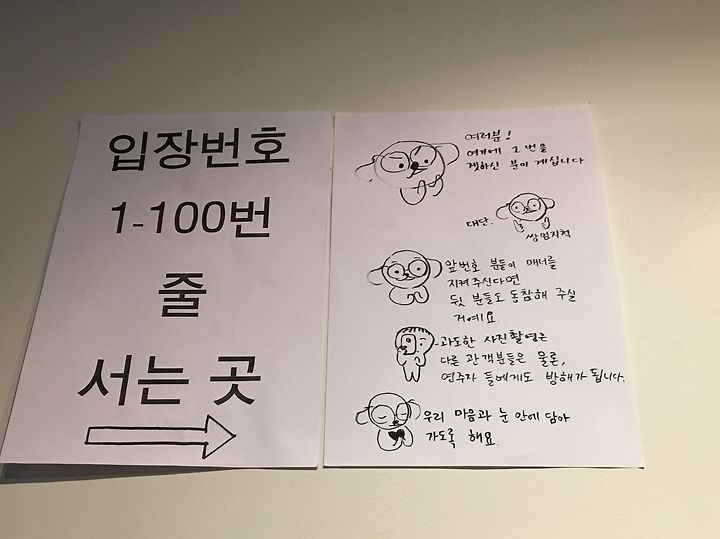 입장번호
1-100번
줄
서는 곳
여러분!
여기에 1번을
겟하신 분이 계십니다
대단.
쌍엄지척
앞번호 분들이 매너를
지켜주신다면
뒷 분들도 동참해 주실
거예요
과도한 사진촬영은
다른 관객분들은 물론,
연주자 들에게도 방해가 됩니다.
우리 마음과 눈 안에 담아
가도록 해요